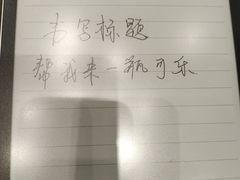 书写标题
帮我来一瓶可乐